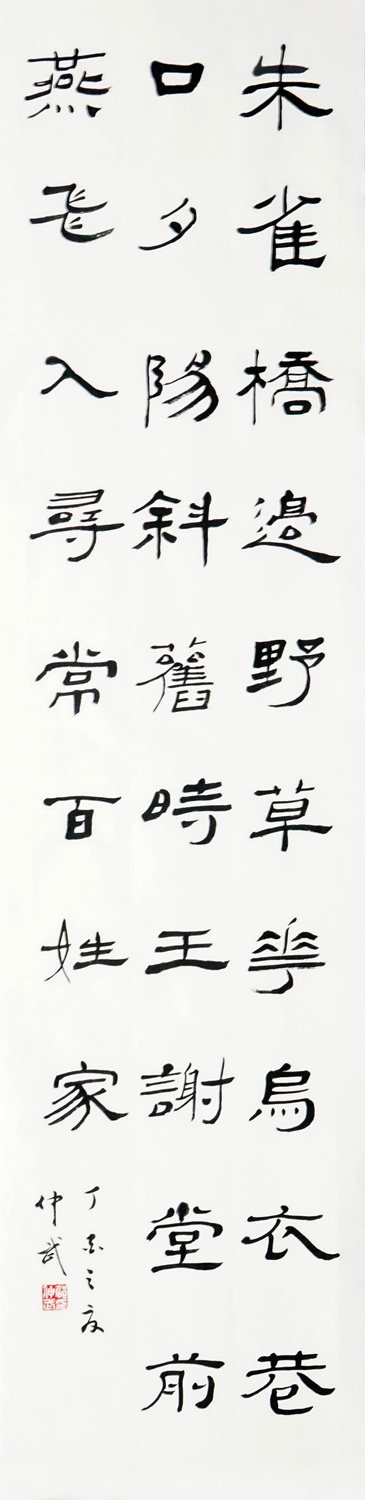 朱雀橋邊野草花烏衣巷
口夕陽斜舊時王謝堂前
燕飛入尋常百姓家
丁之
仲武